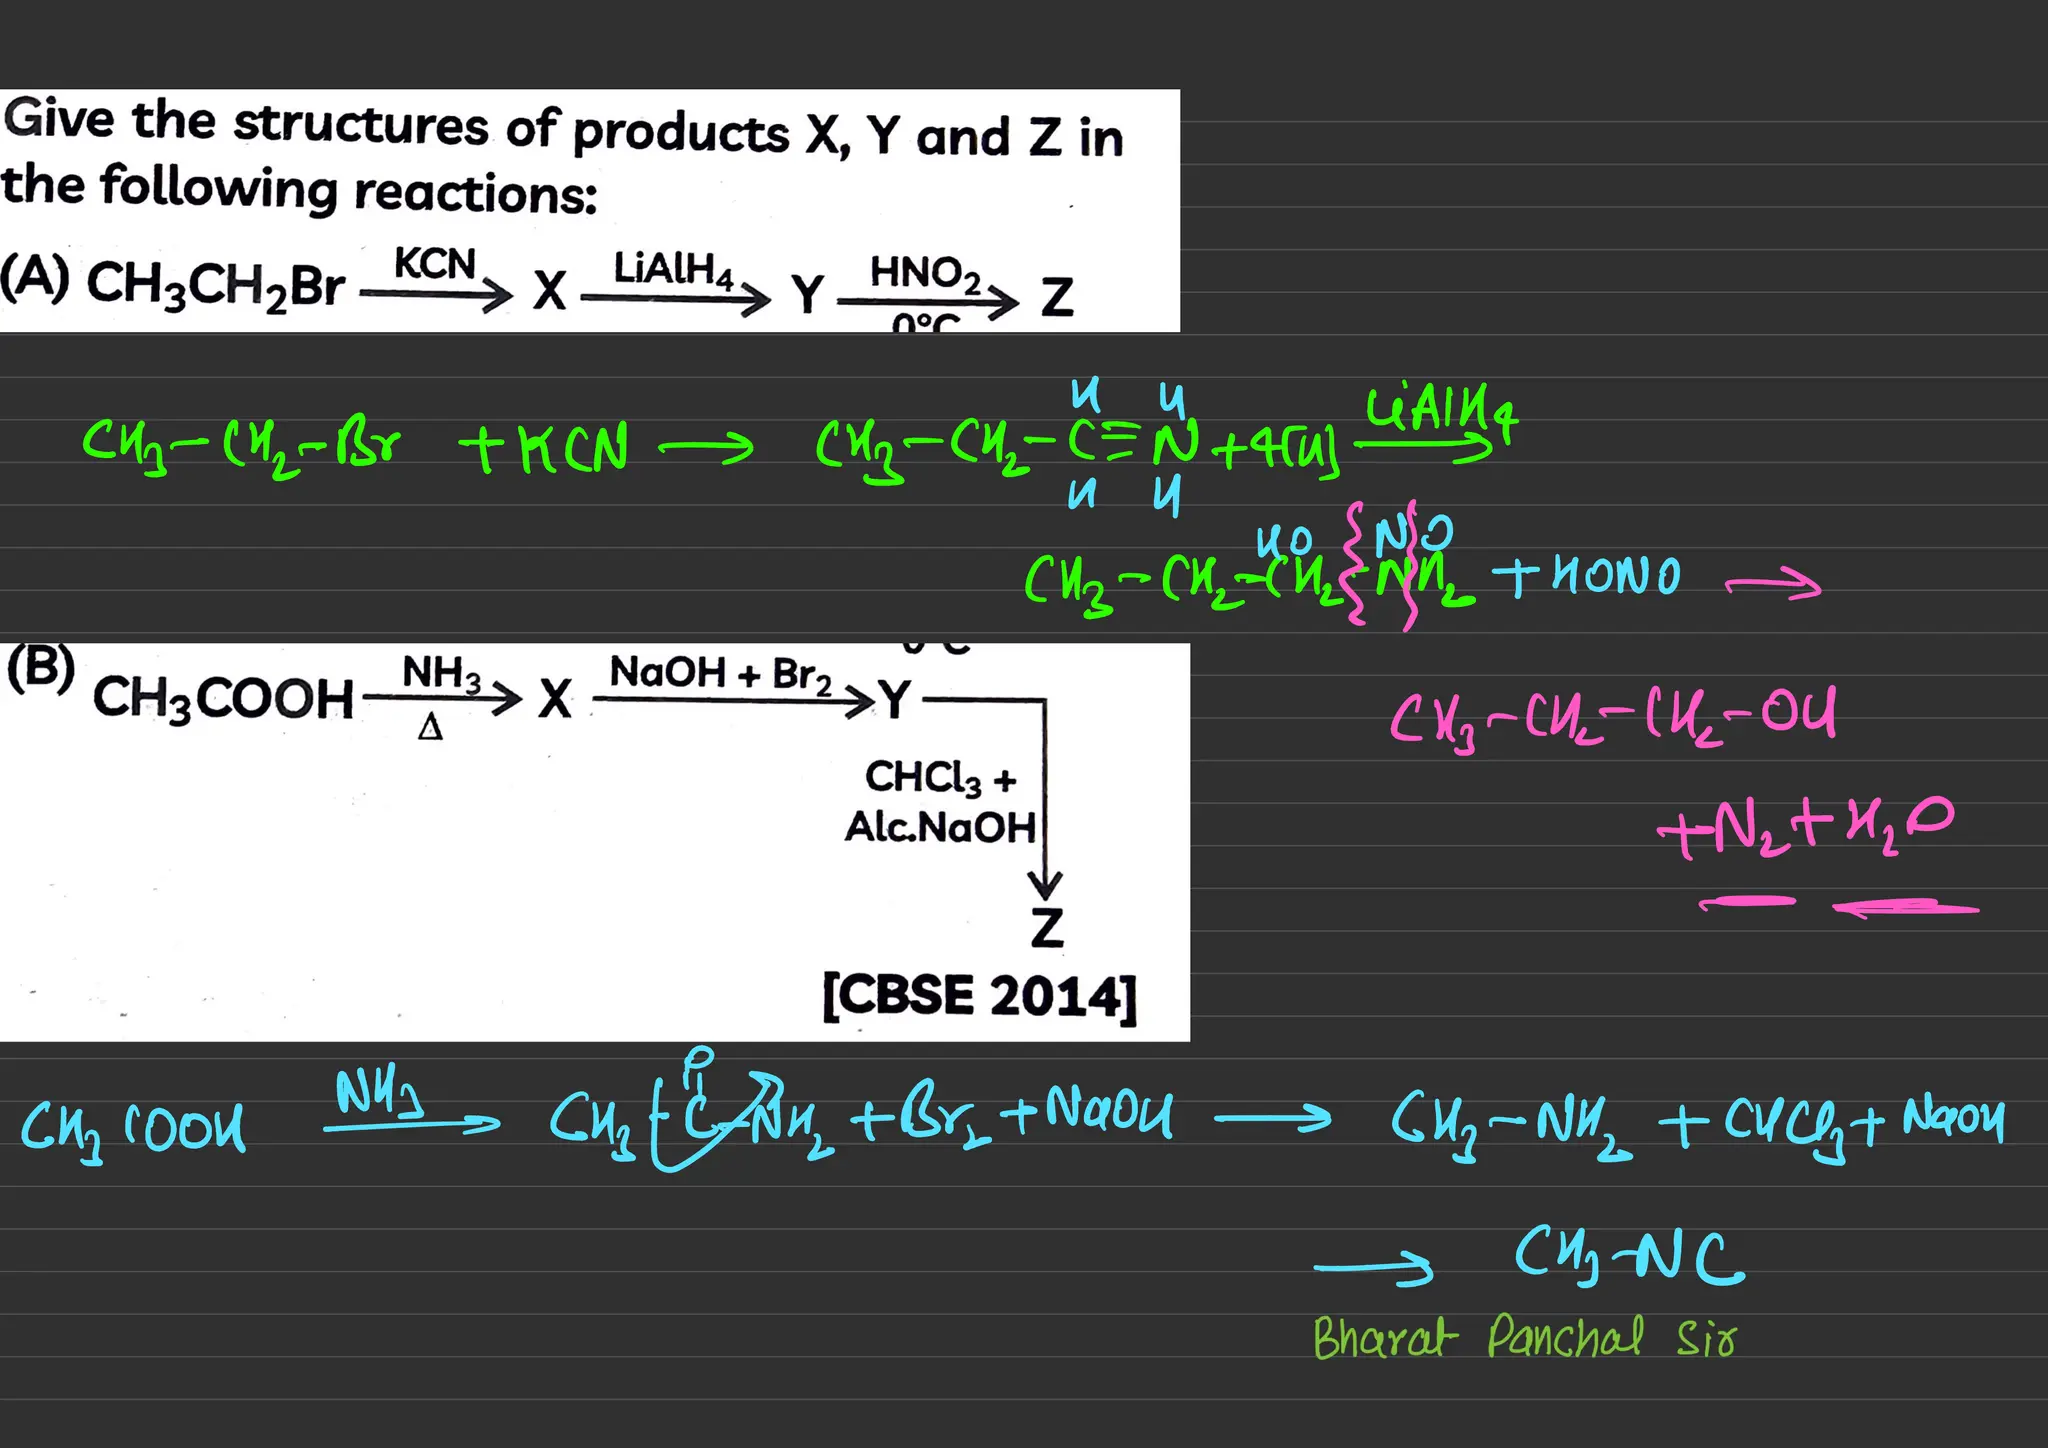 Give the structures of products X, Y and Z in
the following reactions:
(A) CH₃CH₂Br —KCN→ X —LiAlH₄→ Y —HNO₂ 0°C→ Z
CH₃-CH₂-Br + KCN → CH₃-CH₂-C≡N + 4[H] —LiAlH₄→
H H
H H
HO N O
CH₃-CH₂-CH₂-NH₂ + HONO →
(B) CH₃COOH —NH₃ Δ→ X —NaOH + Br₂→ Y
CH₃-CH₂-CH₂-OH
CHCl₃ +
Alc.NaOH
+N₂+H₂O
Z
[CBSE 2014]
O
CH₃COOH —NH₃→ CH₃-C-NH₂ + Br₂ + NaOH → CH₃-NH₂ + CHCl₃ + NaOH
→ CH₃-NC
Bharat Panchal Sir